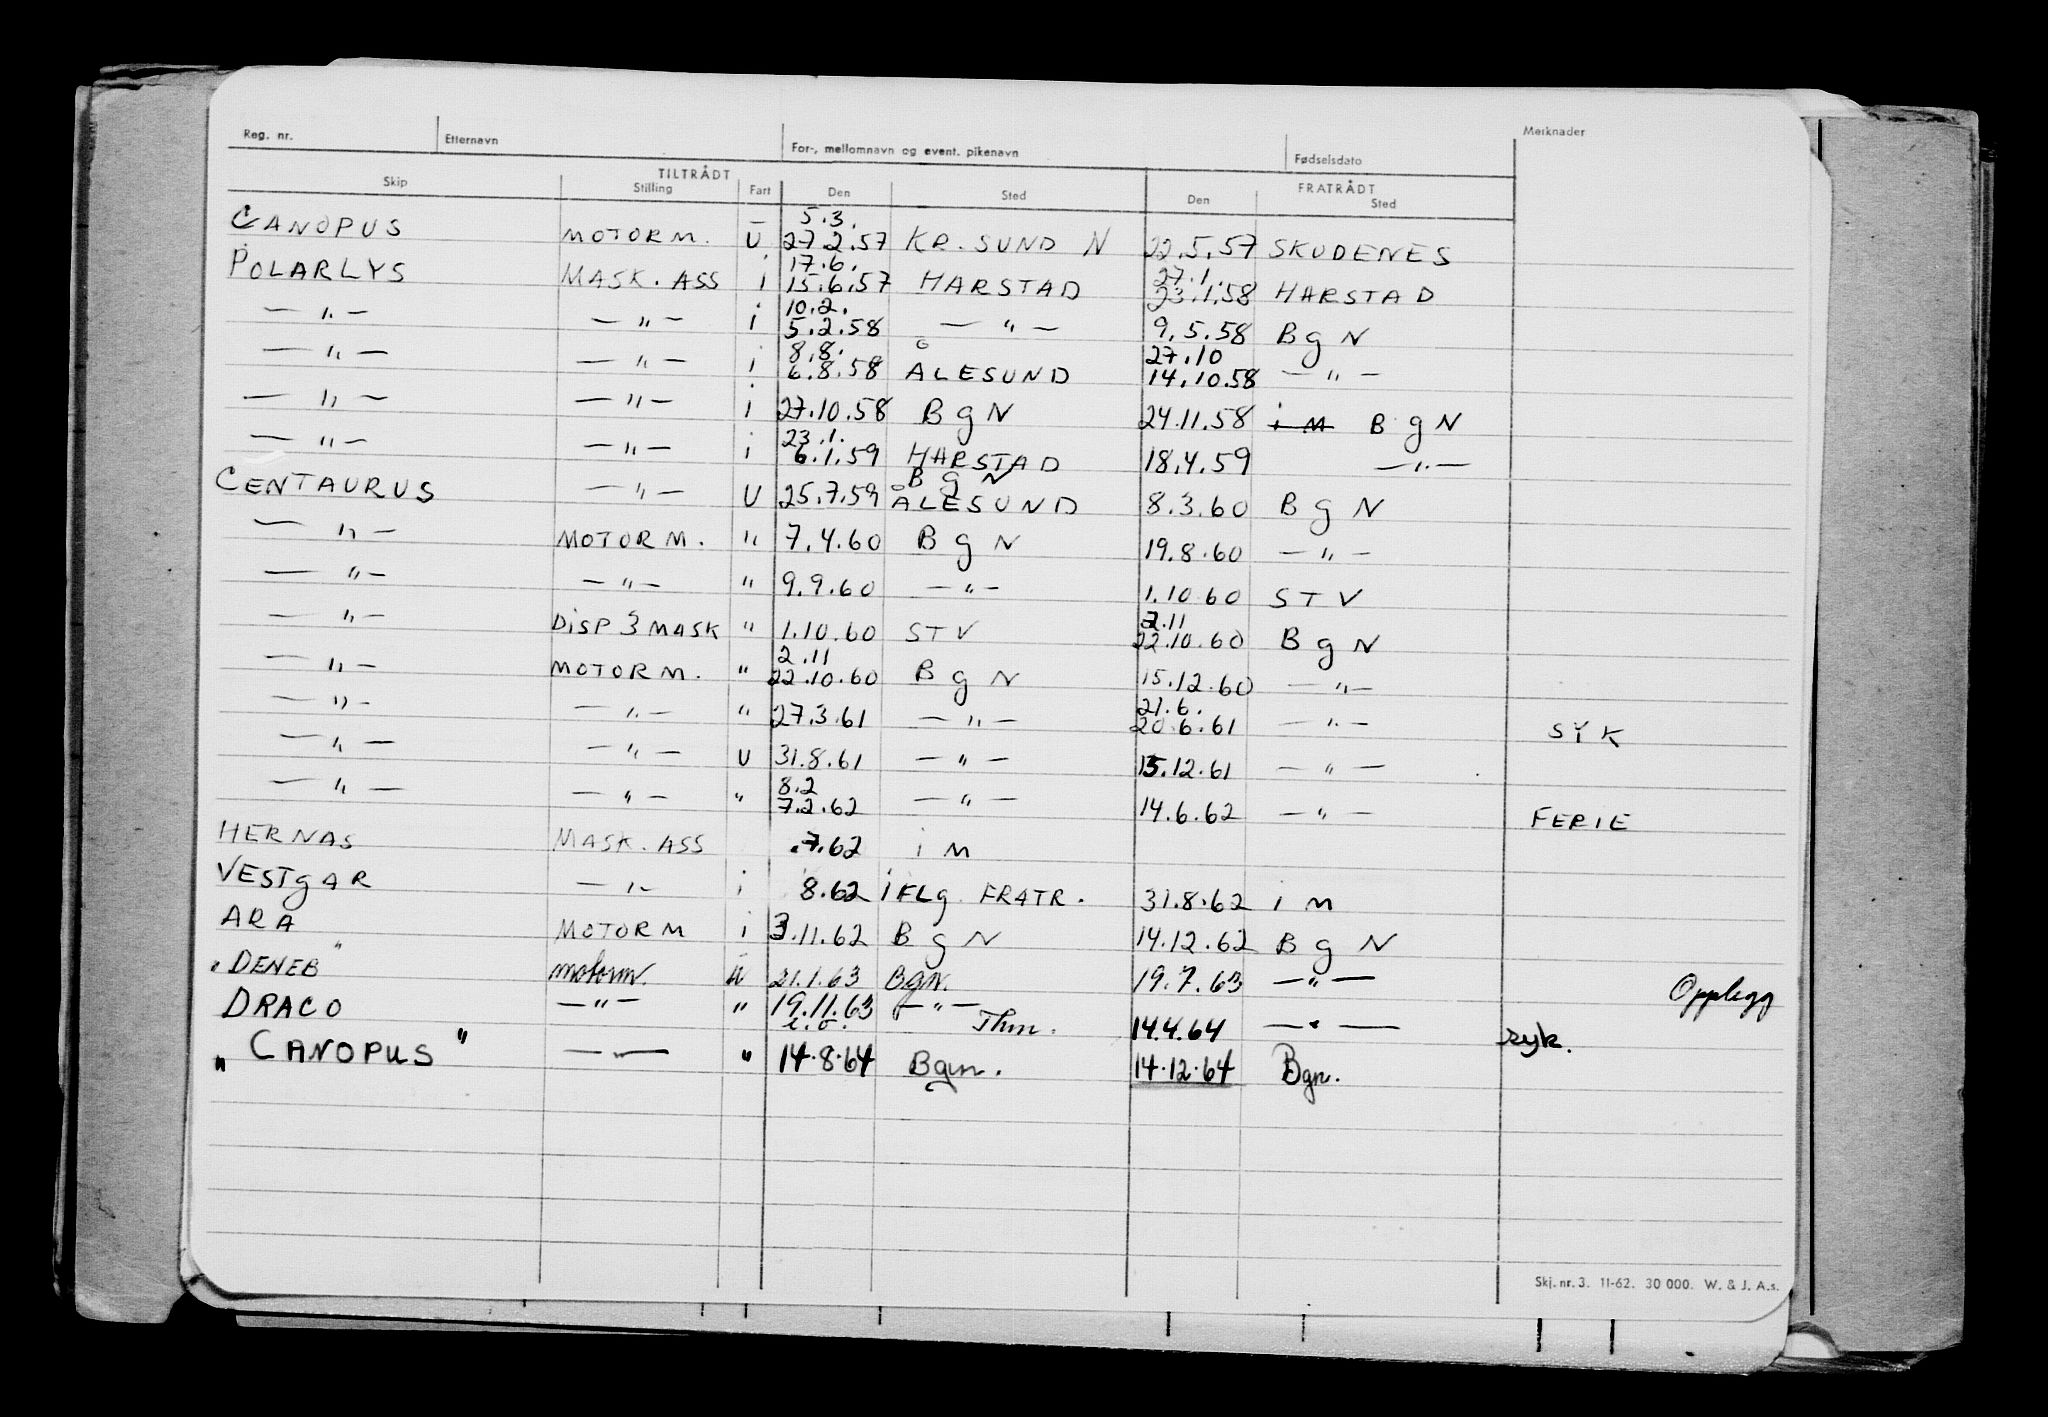 Reg. nr. Etternavn For-, mellomnavn og event. pikenavn Fødselsdato Merknader
TILTRÅDT FRATRÅDT
Skip Stilling Fart Den Sted Den Sted
5.3.
CANOPUS MOTORM. U 27.2.57 KR.SUND N 22.5.57 SKUDENES
17.6. 27.1.
POLARLYS MASK. ASS i 15.6.57 HARSTAD 23.1.58 HARSTAD
10.2.
— " — — " — i 5.2.58 — " — 9.5.58 BgN
8.8. 27.10
— " — — " — i 6.8.58 ÅLESUND 14.10.58 — " —
— " — — " — i 27.10.58 BgN 24.11.58 i M BgN
23.1.
— " — — " — i 6.1.59 HARSTAD 18.4.59 — " —
BgN
CENTAURUS — " — U 25.7.59 ÅLESUND 8.3.60 BgN
— " — MOTORM. " 7.4.60 BgN 19.8.60 — " —
— " — — " — " 9.9.60 — " — 1.10.60 STV
2.11
— " — DISP 3 MASK " 1.10.60 STV 22.10.60 BgN
2.11
— " — MOTORM. " 22.10.60 BgN 15.12.60 — " —
21.6.
— " — — " — " 27.3.61 — " — 20.6.61 — " — SYK
— " — — " — U 31.8.61 — " — 15.12.61 — " —
8.2
— " — — " — " 7.2.62 — " — 14.6.62 — " — FERIE
HERNAS MASK. ASS .7.62 i M
VESTGAR — " — i 8.62 iFLg. FRATR. 31.8.62 i M
ARA MOTORM i 3.11.62 BgN 14.12.62 BgN
"DENEB" motorm. u 21.1.63 Bgn. 19.7.63 — " — Opplegg
DRACO — " — " 19.11.63 — " — Thm. 14.4.64 — " — syk.
"CANOPUS" — " — " 14.8.64 Bgn. 14.12.64 Bgn.
Skj. nr. 3. 11-62. 30 000. W. & J. A.s.